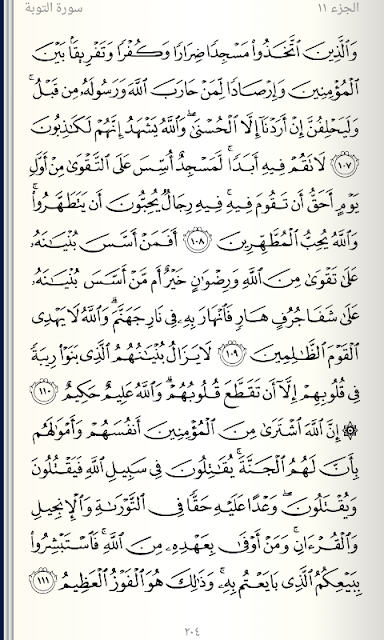 الجزء ١١ سورة التوبة
وَٱلَّذِينَ ٱتَّخَذُوا۟ مَسْجِدًا ضِرَارًا وَكُفْرًا وَتَفْرِيقًۢا بَيْنَ
ٱلْمُؤْمِنِينَ وَإِرْصَادًا لِّمَنْ حَارَبَ ٱللَّهَ وَرَسُولَهُۥ مِن قَبْلُ ۚ
وَلَيَحْلِفُنَّ إِنْ أَرَدْنَآ إِلَّا ٱلْحُسْنَىٰ ۖ وَٱللَّهُ يَشْهَدُ إِنَّهُمْ لَكَـٰذِبُونَ
١٠٧ لَا تَقُمْ فِيهِ أَبَدًا ۚ لَّمَسْجِدٌ أُسِّسَ عَلَى ٱلتَّقْوَىٰ مِنْ أَوَّلِ
يَوْمٍ أَحَقُّ أَن تَقُومَ فِيهِ ۚ فِيهِ رِجَالٌ يُحِبُّونَ أَن يَتَطَهَّرُوا۟ ۚ
وَٱللَّهُ يُحِبُّ ٱلْمُطَّهِّرِينَ ١٠٨ أَفَمَنْ أَسَّسَ بُنْيَـٰنَهُۥ
عَلَىٰ تَقْوَىٰ مِنَ ٱللَّهِ وَرِضْوَٰنٍ خَيْرٌ أَم مَّنْ أَسَّسَ بُنْيَـٰنَهُۥ
عَلَىٰ شَفَا جُرُفٍ هَارٍ فَٱنْهَارَ بِهِۦ فِى نَارِ جَهَنَّمَ ۗ وَٱللَّهُ لَا يَهْدِى
ٱلْقَوْمَ ٱلظَّـٰلِمِينَ ١٠٩ لَا يَزَالُ بُنْيَـٰنُهُمُ ٱلَّذِى بَنَوْا۟ رِيبَةً
فِى قُلُوبِهِمْ إِلَّآ أَن تَقَطَّعَ قُلُوبُهُمْ ۗ وَٱللَّهُ عَلِيمٌ حَكِيمٌ ١١٠
۞ إِنَّ ٱللَّهَ ٱشْتَرَىٰ مِنَ ٱلْمُؤْمِنِينَ أَنفُسَهُمْ وَأَمْوَٰلَهُم
بِأَنَّ لَهُمُ ٱلْجَنَّةَ ۚ يُقَـٰتِلُونَ فِى سَبِيلِ ٱللَّهِ فَيَقْتُلُونَ
وَيُقْتَلُونَ ۖ وَعْدًا عَلَيْهِ حَقًّا فِى ٱلتَّوْرَىٰةِ وَٱلْإِنجِيلِ
وَٱلْقُرْءَانِ ۚ وَمَنْ أَوْفَىٰ بِعَهْدِهِۦ مِنَ ٱللَّهِ ۚ فَٱسْتَبْشِرُوا۟
بِبَيْعِكُمُ ٱلَّذِى بَايَعْتُم بِهِۦ ۚ وَذَٰلِكَ هُوَ ٱلْفَوْزُ ٱلْعَظِيمُ ١١١
٢٠٤